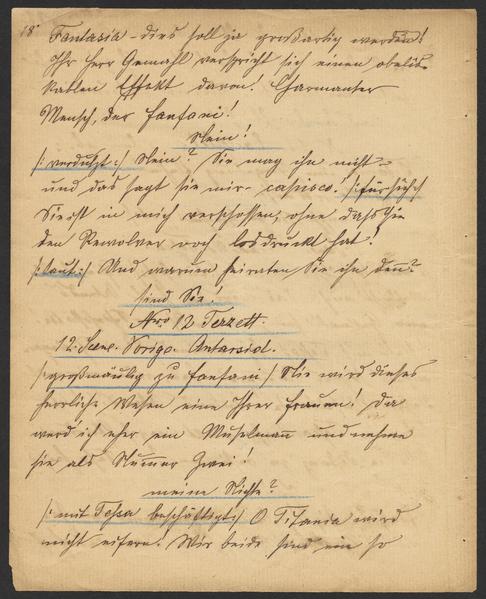 18
Fantasia – dies soll ja großartig werden!
Ihr Herr Gemahl verspricht sich einen obelis-
kablen Effekt davon! Charmanter
Mensch, der Fanfani!
Nein!
/: verdutzt :/ Nein? Sie mag ihn nicht –
und das sagt sie mir – capisco! /: für sich :/
Sie ist in mich verschossen, ohne daß sie
den Revolver noch losdruckt hat!
/: laut :/ Und warum heiraten Sie ihn denn?
sind Sie!
Nro 12 Terzett.
12. Scene. Vorige. Antarsid.
/: großmäulig zu Fanfani / Nie wird dieses
herrliche Wesen eine Ihrer Frauen! Da
werd' ich eher ein Muselmann und nehme
sie als Numer Zwei!
meine Nichte?
/: mit Tessa beschäftigt :/ O Titania wird
nicht eifern! Wir beide sind ein so